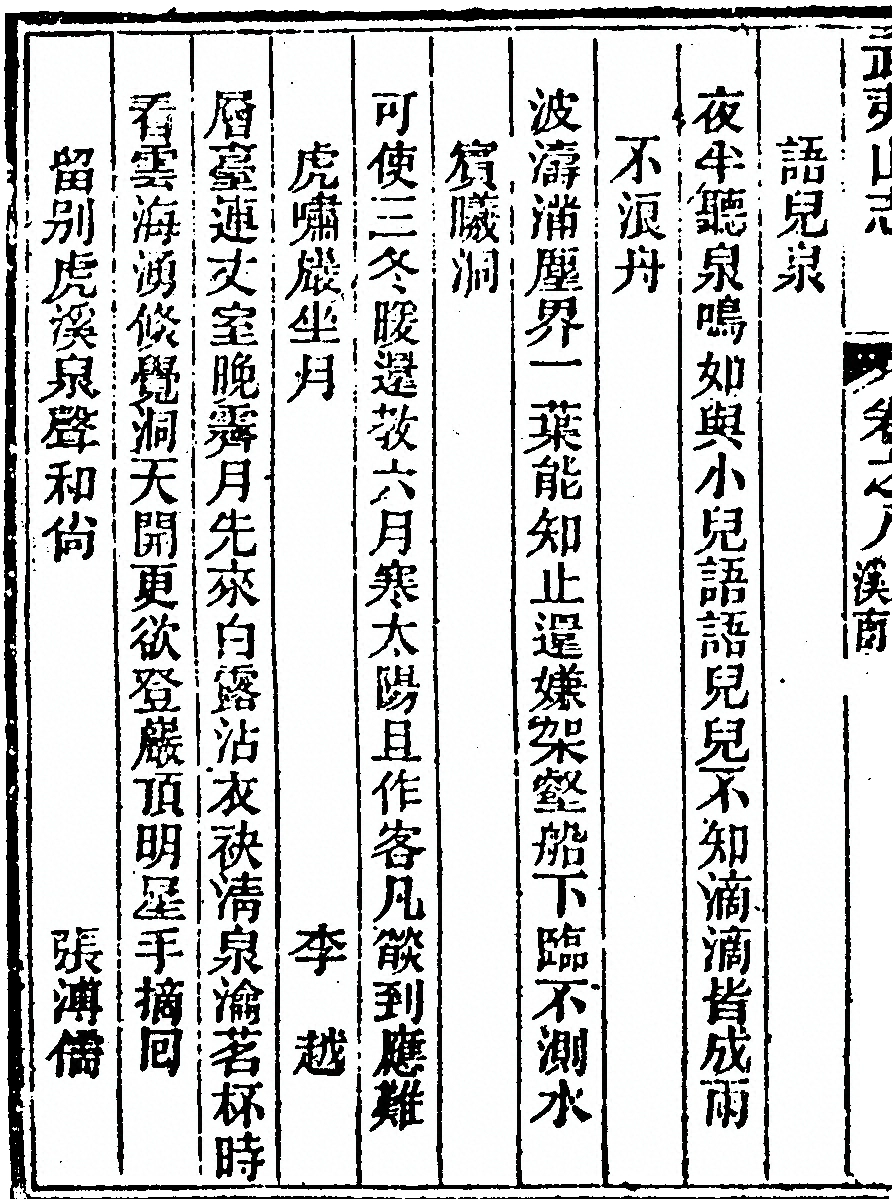 武夷山志 卷之八 溪南
語兒泉
夜半聽泉鳴如與小兒語語兒兒不知滴滴皆成雨
不浪舟
波濤滿塵界一葉能知止還嫌架壑船下臨不測水
賓曦洞
可使三冬暖還教六月寒太陽且作客凡燄到應難
虎嘯巖坐月 李越
層臺連丈室晚霽月先來白露沾衣袂清泉瀹茗杯時
看雲海湧倐覺洞天開更欲登巖頂明星手摘回
留别虎溪泉聲和尙 張溥儒